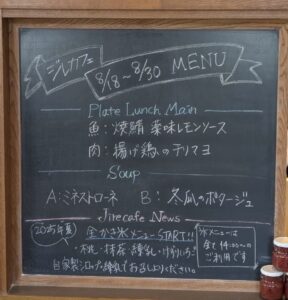 ジレカフェ
8/18~8/30 MENU
Plate Lunch Main
魚：焼鯖 薬味レモンソース
肉：揚げ鶏のテリマヨ
Soup
A：ミネストローネ B：冬瓜のポタージュ
Jirecafe News
かき氷メニューSTART!!
・桃・抹茶・練乳・いちごみるく
自家製シロップと練乳でお召し上りください。
氷メニューは
全て14:00〜の
ご利用です